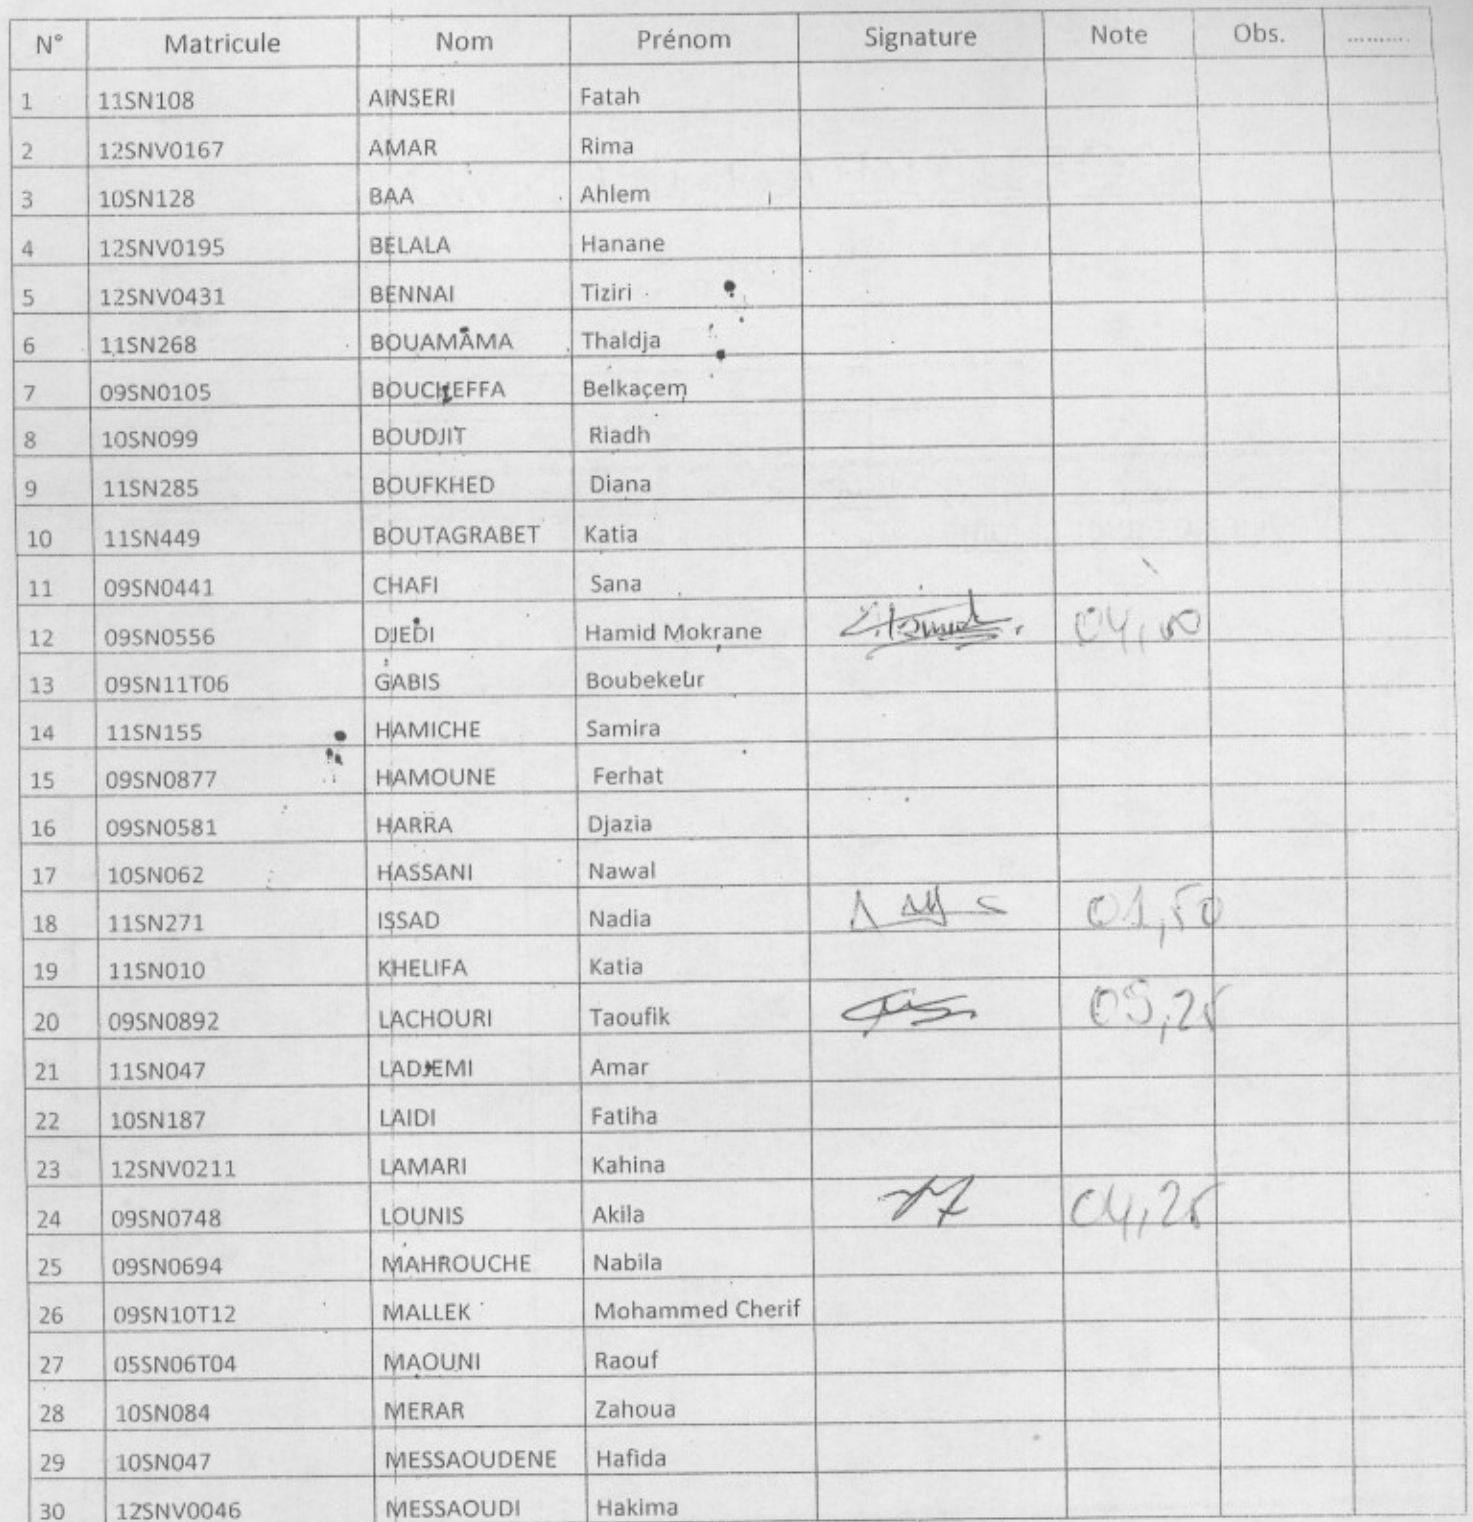 N° Matricule Nom Prénom Signature Note Obs. ..........
1 11SN108 AINSERI Fatah
2 12SNV0167 AMAR Rima
3 10SN128 BAA Ahlem
4 12SNV0195 BELALA Hanane
5 12SNV0431 BENNAI Tiziri
6 11SN268 BOUAMAMA Thaldja
7 09SN0105 BOUCHEFFA Belkaçem
8 10SN099 BOUDJIT Riadh
9 11SN285 BOUFKHED Diana
10 11SN449 BOUTAGRABET Katia
11 09SN0441 CHAFI Sana
12 09SN0556 DJEDI Hamid Mokrane 04,00
13 09SN11T06 GABIS Boubekeur
14 11SN155 HAMICHE Samira
15 09SN0877 HAMOUNE Ferhat
16 09SN0581 HARRA Djazia
17 10SN062 HASSANI Nawal
18 11SN271 ISSAD Nadia 01,50
19 11SN010 KHELIFA Katia
20 09SN0892 LACHOURI Taoufik 05,25
21 11SN047 LADJEMI Amar
22 10SN187 LAIDI Fatiha
23 12SNV0211 LAMARI Kahina
24 09SN0748 LOUNIS Akila 04,25
25 09SN0694 MAHROUCHE Nabila
26 09SN10T12 MALLEK Mohammed Cherif
27 05SN06T04 MAOUNI Raouf
28 10SN084 MERAR Zahoua
29 10SN047 MESSAOUDENE Hafida
30 12SNV0046 MESSAOUDI Hakima